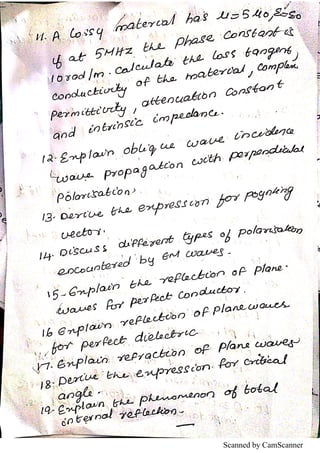 11. A lossy material has μ=5μ0, ε=ε0
if at 5MHz the phase constant is
10 rad/m. calculate the loss tangent,
conductivity of the material, complex
permittivity, attenuation constant
and intrinsic impedance.
12. Explain oblique wave incidence
wave propagation with perpendicular
Polarisation.
13. Derive the expression for poynting
vector.
14. Discuss different types of polarisation
encountered by EM waves.
15. Explain the reflection of plane
waves for perfect conductor.
16 Explain reflection of plane waves
for perfect dielectric
17. Explain refraction of plane waves
18. Derive the expression for critical
angle.
19. Explain the phenomenon of total
internal reflection.
Scanned by CamScanner